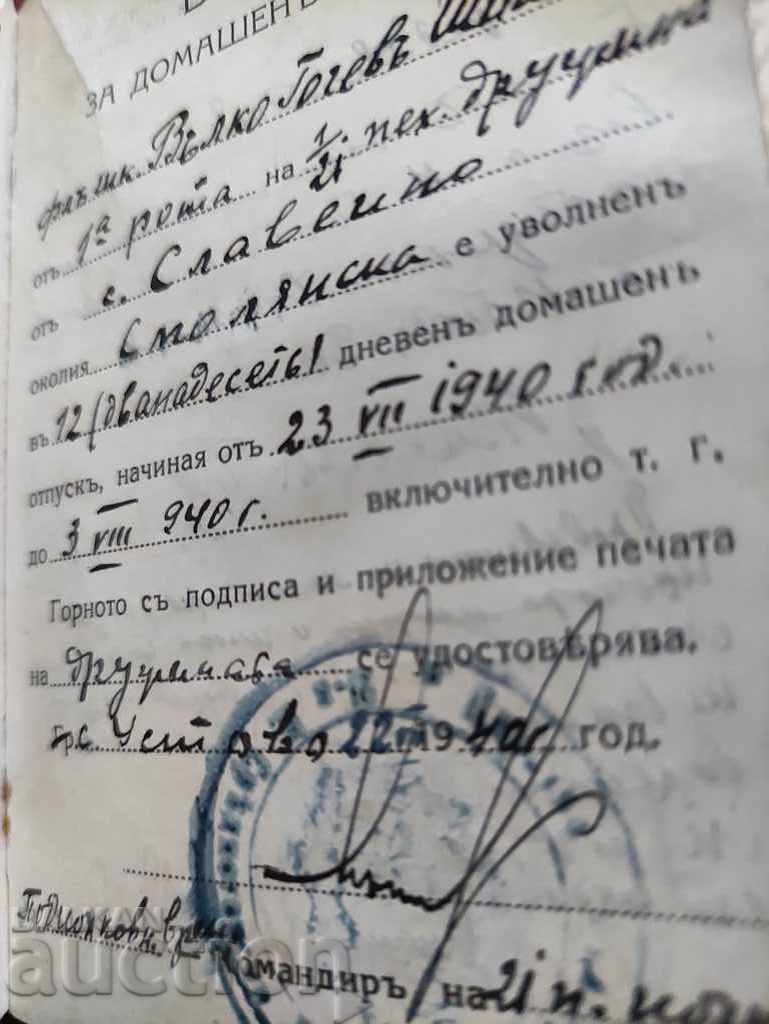 ЗА ДОМАШЕНЪ
Вълко Гогевъ
отъ 1ª рота на 1/21 пех. дружина
отъ с. Славеино
околия Смолянска е уволненъ
въ 12 /дванадесеть/ дневенъ домашенъ
отпускъ, начиная отъ 23 VII 1940 год.
до 3 VIII 940 г. включително т. г.
Горното съ подписа и приложение печата
на дружината се удостовѣрява.
Гр. с. Устово 22 1940 г. год.
Подполковн.
Командиръ на 21 п.
BALKAN
auction